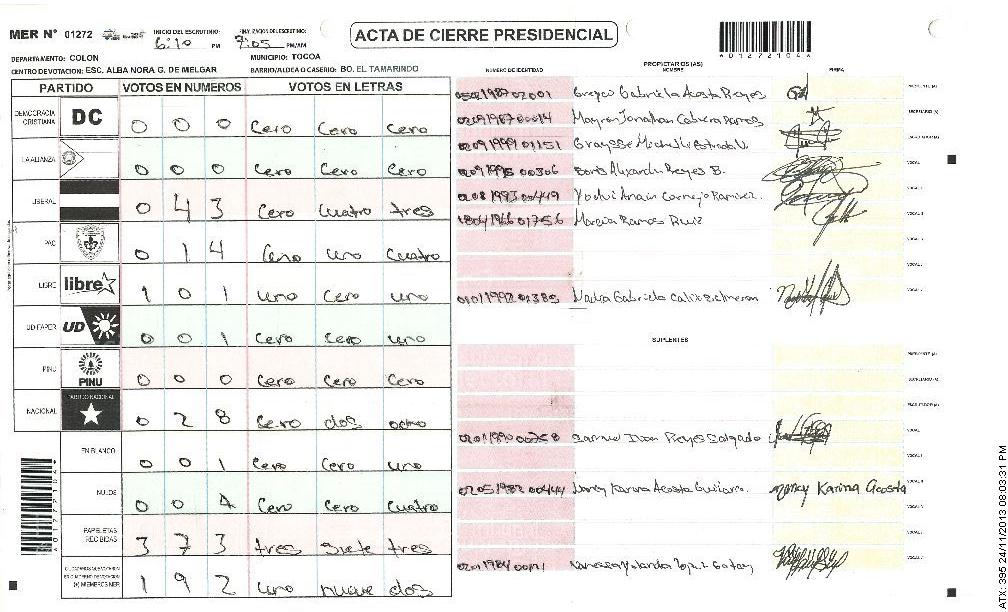 MER N° 01272 INICIO DEL ESCRUTINIO: 6:10 PM FINALIZACION DEL ESCRUTINIO: 7:05 PM/AM
ACTA DE CIERRE PRESIDENCIAL
A01272104A
DEPARTAMENTO: COLON MUNICIPIO: TOCOA
CENTRO DE VOTACION: ESC. ALBA NORA G. DE MELGAR BARRIO/ALDEA O CASERIO: BO. EL TAMARINDO
PARTIDO VOTOS EN NUMEROS VOTOS EN LETRAS
DEMOCRACIA CRISTIANA DC 0 0 0 Cero Cero Cero
LA ALIANZA 0 0 0 Cero Cero Cero
LIBERAL 0 4 3 Cero Cuatro tres
PAC 0 1 4 Cero uno Cuatro
LIBRE libre 1 0 1 uno Cero uno
UD FAPER UD 0 0 1 Cero Cero uno
PINU PINU 0 0 0 Cero Cero Cero
NACIONAL PARTIDO NACIONAL 0 2 8 Cero dos ocho
EN BLANCO 0 0 1 Cero Cero uno
NULOS 0 0 4 Cero Cero Cuatro
PAPELETAS RECIBIDAS 3 7 3 tres siete tres
1 9 2 uno nueve dos
NUMERO DE IDENTIDAD PROPIETARIOS (AS) NOMBRE FIRMA
Gabriela Acosta Reyes PRESIDENTE (A)
0209198700014 Jonathan Cabrera Ramos SECRETARIO (A)
0209199901151 Michelle ESCRUTADOR (A)
0209199500306 Alejandro Reyes B. VOCAL
0208199300449 Cornejo Ramirez. VOCAL
1804196601756 Maria Ramos Ruiz VOCAL
0101199201385 Gabriela Calix
SUPLENTES
PRESIDENTE (A)
SECRETARIO (A)
ESCRUTADOR (A)
0201199000758 Samuel Ivan Reyes Salgado VOCAL
0205198200444 Nancy Karina Acosta Nancy Karina Acosta
Vanessa Yolanda
ATX: 395 24/11/2013 08:03:31 PM